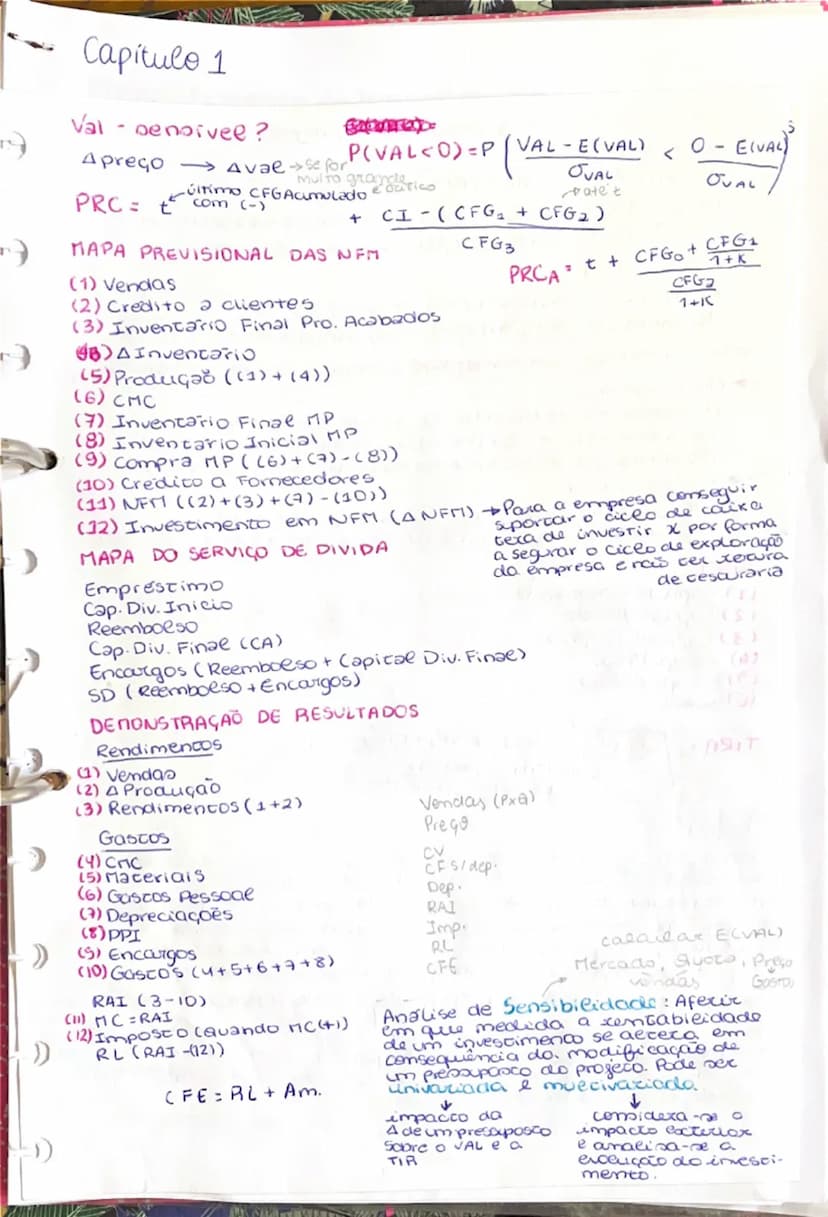 Capítulo 1
Val - sensível?
Δ preço → Δ val → se for muito grande é crítico
P(VAL<0) = P ( VAL - E(VAL) / σVAL < 0 - E(VAL) / σVAL )
PRC = t ← último CFG Acumulado com (-)
+ CI - (CFG1 + CFG2) / CFG3
→ até t
PRCA = t + CFG0 + CFG1/1+K / CFG2/1+K
MAPA PREVISIONAL DAS NFM
(1) Vendas
(2) Credito a clientes
(3) Inventário Final Pro. Acabados
Δ Inventário
(5) Produção ((1) + (4))
(6) CMC
(7) Inventário Final MP
(8) Inventário Inicial MP
(9) Compra MP ((6)+(7)-(8))
(10) Credito a Fornecedores
(11) NFM ((2)+(3)+(7)-(10))
(12) Investimento em NFM (Δ NFM) → Para a empresa conseguir
suportar o ciclo de caixa
terá de investir x por forma
a segurar o ciclo de exploração
da empresa e não ter rotura
de tesouraria
MAPA DO SERVIÇO DE DIVIDA
Empréstimo
Cap. Div. Inicio
Reembolso
Cap. Div. Final (CA)
Encargos (Reembolso + Capital Div. Final)
SD (Reembolso + Encargos)
DEMONSTRAÇÃO DE RESULTADOS
Rendimentos
(1) Vendas
(2) Δ Produção
(3) Rendimentos (1+2)
Gastos
(4) CMC
(5) Materiais
(6) Gastos Pessoal
(7) Depreciações
(8) PPI
(9) Encargos
(10) Gastos (4+5+6+7+8)
RAI (3-10)
(11) MC = RAI
(12) Imposto (quando MC(+))
RL (RAI -(12))
CFE = RL + Am.
Vendas (PxQ)
Preço
CV
CF s/ dep.
Dep.
RAI
Imp.
RL
CFE
calcular E(VAL)
Mercado, Quota, Preço
vendas Gastos
Análise de Sensibilidade: Aferir
em que medida a rentabilidade
de um investimento se altera em
consequência da modificação de
um pressuposto do projeto. Pode ser
univariada e multivariada.
↓
impacto da
Δ de um pressuposto
sobre o VAL e a
TIR
↓
considera-se o
impacto exterior
e analisa-se a
execução do investi-
mento.